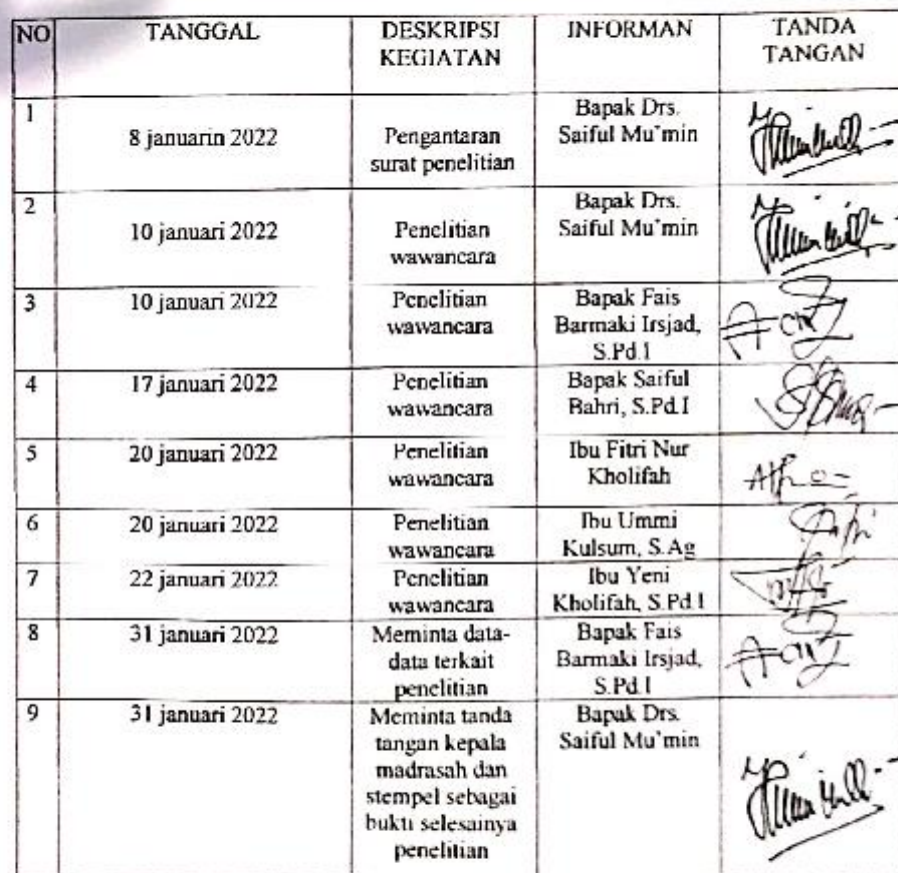 NO TANGGAL DESKRIPSI KEGIATAN INFORMAN TANDA TANGAN
1 8 januarin 2022 Pengantaran surat penelitian Bapak Drs. Saiful Mu'min
2 10 januari 2022 Penelitian wawancara Bapak Drs. Saiful Mu'min
3 10 januari 2022 Penelitian wawancara Bapak Fais Barmaki Irsjad, S.Pd.I
4 17 januari 2022 Penelitian wawancara Bapak Saiful Bahri, S.Pd.I
5 20 januari 2022 Penelitian wawancara Ibu Fitri Nur Kholifah
6 20 januari 2022 Penelitian wawancara Ibu Ummi Kulsum, S.Ag
7 22 januari 2022 Penelitian wawancara Ibu Yeni Kholifah, S.Pd.I
8 31 januari 2022 Meminta data-data terkait penelitian Bapak Fais Barmaki Irsjad, S.Pd.I
9 31 januari 2022 Meminta tanda tangan kepala madrasah dan stempel sebagai bukti selesainya penelitian Bapak Drs. Saiful Mu'min